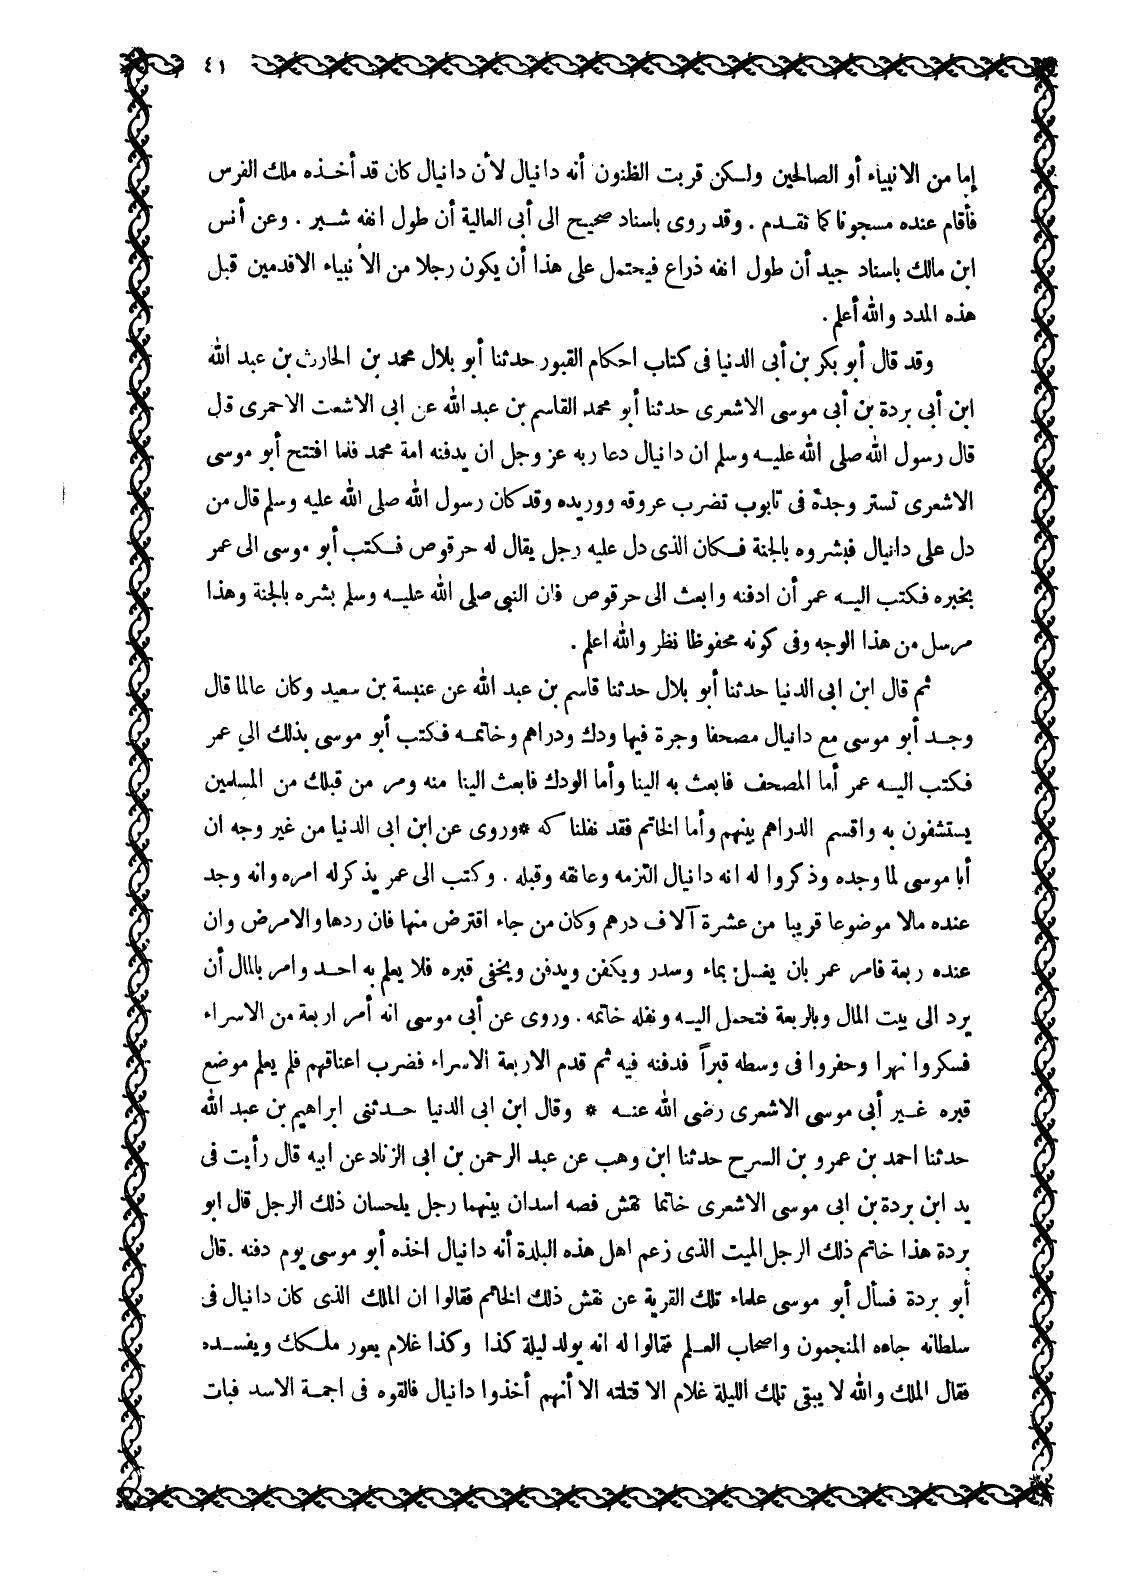 ٤١
إما من الانبياء أو الصالحين ولكن قربت الظنون أنه دانيال لأن دانيال كان قد أخذه ملك الفرس
فأقام عنده مسجونا كما تقدم . وقد روى باسناد صحيح الى أبى العالية أن طول انفه شبر . وعن أنس
ابن مالك باسناد جيد أن طول انفه ذراع فيحتمل على هذا أن يكون رجلا من الأنبياء الاقدمين قبل
هذه المدد والله أعلم .
وقد قال أبو بكر بن أبى الدنيا فى كتاب احكام القبور حدثنا أبو بلال محمد بن الحارث بن عبد الله
ابن أبى بردة بن أبى موسى الاشعرى حدثنا أبو محمد القاسم بن عبد الله عن ابى الاشعث الاحمرى قال
قال رسول الله صلى الله عليه وسلم ان دانيال دعا ربه عز وجل ان يدفنه امة محمد فلما افتتح أبو موسى
الاشعرى تستر وجده فى تابوب تضرب عروقه ووريده وقد كان رسول الله صلى الله عليه وسلم قال من
دل على دانيال فبشروه بالجنة فكان الذى دل عليه رجل يقال له حرقوص فكتب أبو موسى الى عمر
بخبره فكتب اليه عمر أن ادفنه وابعث الى حرقوص فان النبى صلى الله عليه وسلم بشره بالجنة وهذا
مرسل من هذا الوجه وفى كونه محفوظا نظر والله اعلم .
ثم قال ابن ابى الدنيا حدثنا أبو بلال حدثنا قاسم بن عبد الله عن عنبسة بن سعيد وكان عالما قال
وجد أبو موسى مع دانيال مصحفا وجرة فيها ودك ودراهم وخاتمه فكتب أبو موسى بذلك الي عمر
فكتب اليه عمر أما المصحف فابعث به الينا وأما الودك فابعث الينا منه ومر من قبلك من المسلمين
يستشفون به واقسم الدراهم بينهم وأما الخاتم فقد نفلنا كه * وروى عن ابن ابى الدنيا من غير وجه ان
أبا موسى لما وجده وذكروا له انه دانيال التزمه وعانقه وقبله . وكتب الى عمر يذكر له امره وانه وجد
عنده مالا موضوعا قريبا من عشرة آلاف درهم وكان من جاء اقترض منها فان ردها والا مرض وان
عنده ربعة فامر عمر بان يغسل بماء وسدر ويكفن ويدفن ويخفى قبره فلا يعلم به احد وامر بالمال أن
يرد الى بيت المال وبالربعة فتحمل اليه ونفله خاتمه . وروى عن أبى موسى انه أمر اربعة من الاسراء
فسكروا نهرا وحفروا فى وسطه قبراً فدفنه فيه ثم قدم الاربعة الاسراء فضرب اعناقهم فلم يعلم موضع
قبره غير أبى موسى الاشعرى رضى الله عنه * وقال ابن ابى الدنيا حدثنى ابراهيم بن عبد الله
حدثنا احمد بن عمرو بن السرح حدثنا ابن وهب عن عبد الرحمن بن ابى الزناد عن ابيه قال رأيت فى
يد ابن بردة بن ابى موسى الاشعرى خاتما نقش فصه اسدان بينهما رجل يلحسان ذلك الرجل قال ابو
بردة هذا خاتم ذلك الرجل الميت الذى زعم اهل هذه البلدة أنه دانيال اخذه أبو موسى يوم دفنه . قال
أبو بردة فسأل أبو موسى علماء تلك القرية عن نقش ذلك الخاتم فقالوا ان الملك الذى كان دانيال فى
سلطانه جاءه المنجمون واصحاب العلم فقالوا له انه يولد ليلة كذا وكذا غلام يعور ملكك ويفسده
فقال الملك والله لا يبقى تلك الليلة غلام الا قتلته الا أنهم أخذوا دانيال فالقوه فى اجمة الاسد فبات